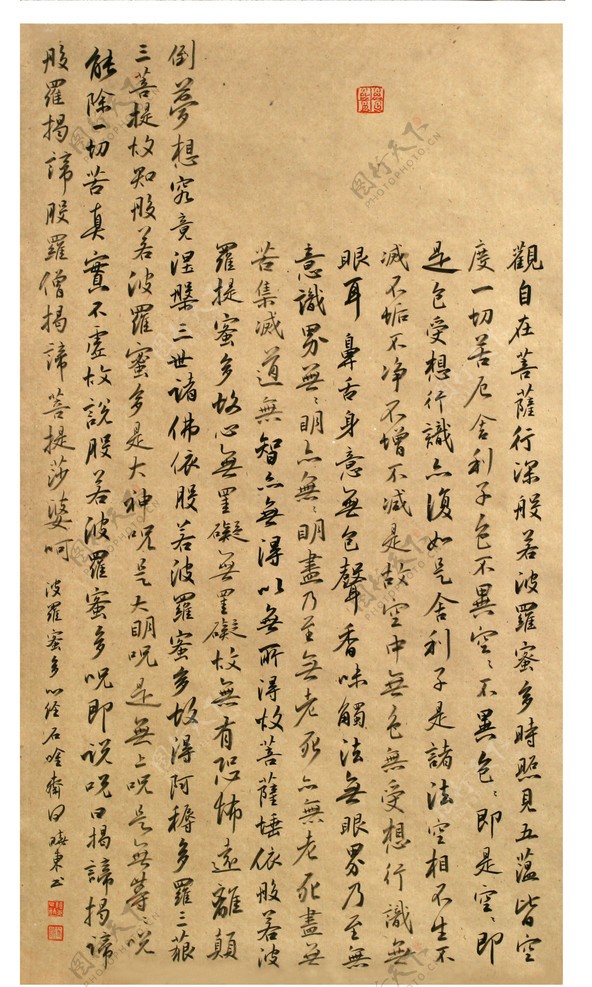 觀自在菩薩行深般若波羅蜜多時照見五蘊皆空
度一切苦厄舍利子色不異空〻不異色〻即是空〻即
是色受想行識亦復如是舍利子是諸法空相不生不
滅不垢不净不增不减是故空中無色無受想行識無
眼耳鼻舌身意無色聲香味觸法無眼界乃至無
意識界無〻明亦無〻明盡乃至無老死亦無老死盡無
苦集滅道無智亦無得以無所得故菩薩埵依般若波
羅提蜜多故心無罣礙無罣礙故無有恐怖遠離顛
倒夢想究竟涅槃三世諸佛依般若波羅蜜多故得阿耨多羅三藐
三菩提故知般若波羅蜜多是大神呪是大明呪是無上呪是無等〻呪
能除一切苦真實不虛故說般若波羅蜜多呪即說呪曰揭諦揭諦
般羅揭諦般羅僧揭諦菩提莎婆呵
波羅蜜多心經石唫齋白曉東書
图行天下
PHOTOPHOTO.CN